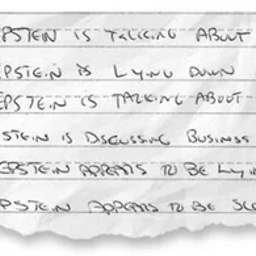 PSTEIN IS TALKING ABOUT
EPSTEIN IS LYING DOWN
EPSTEIN IS TALKING ABOUT
STEIN IS DISCUSSING BUSINESS
EPSTEIN APPEARS TO BE LYIN
PSTEIN APPEARS TO BE SLE